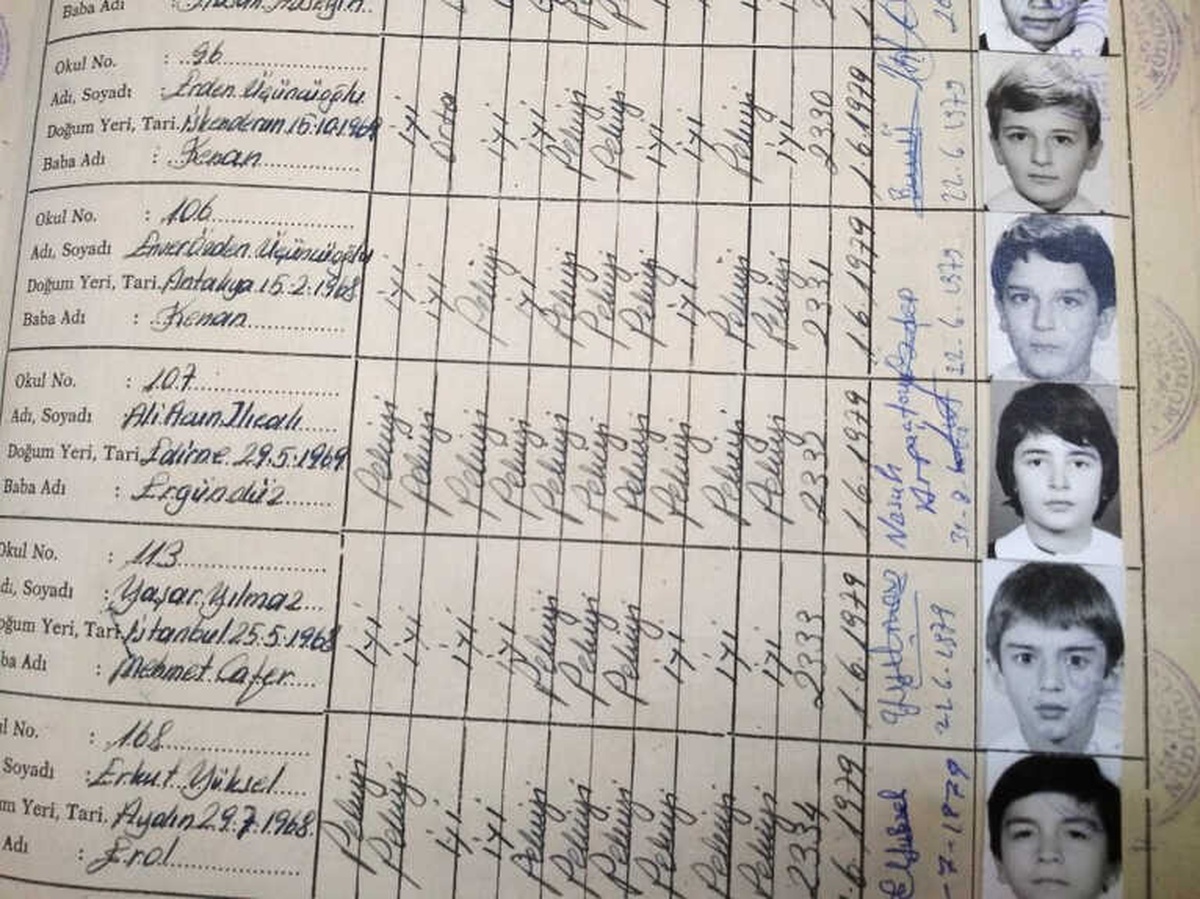 Baba Adı
Okul No. : 96
Adı, Soyadı : Erden Üçüncüoğlu
Doğum Yeri, Tari. İskenderun 15.10.1969
Baba Adı : Kenan
iyi Orta iyi iyi Pekiyi Pekiyi iyi iyi Pekiyi iyi 2330 1.6.1979
22.6.1979
Okul No. : 106
Adı, Soyadı Enver Erden Üçüncüoğlu
Doğum Yeri, Tari. Antakya 15.2.1968
Baba Adı : Kenan
iyi iyi Pekiyi iyi Pekiyi Pekiyi Pekiyi iyi Pekiyi Pekiyi 2331 1.6.1979
22.6.1979
Okul No. : 107
Adı, Soyadı Ali Acun Ilıcalı
Doğum Yeri, Tari. Edirne 29.5.1969
Baba Adı : Ergündüz
Pekiyi Pekiyi Pekiyi Pekiyi Pekiyi Pekiyi Pekiyi Pekiyi Pekiyi Pekiyi 2332 1.6.1979
Okul No. : 113
dı, Soyadı : Yaşar Yılmaz
oğum Yeri, Tari. İstanbul 25.5.1968
ba Adı : Mehmet Cafer
iyi iyi iyi iyi Pekiyi Pekiyi Pekiyi iyi iyi iyi 2333 1.6.1979
ul No. : 168
Soyadı : Erkut Yüksel
m Yeri, Tari. Aydın 29.7.1968
Adı : Erol
Pekiyi Pekiyi iyi iyi Pekiyi Pekiyi Pekiyi Pekiyi Pekiyi Pekiyi 2334 .6.1979